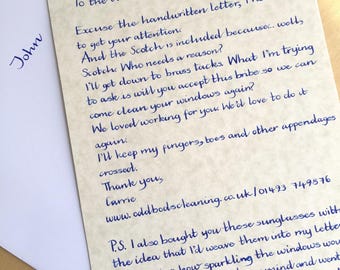 John
To the
Excuse the handwritten letter, I
to get your attention.
And the Scotch is included because.. well,
Scotch! Who needs a reason?
I'll get down to brass tacks. What I'm trying
to ask is will you accept this bribe so we can
come clean your windows again?
We loved working for you. We'd love to do it
again.
I'll keep my fingers, toes and other appendages
crossed.
Thank you,
Carrie
www.oddbodscleaning.co.uk/01493 749576
P.S. I also bought you these sunglasses with
the idea that I'd weave them into my letter
how sparkling the windows wou
mind and went